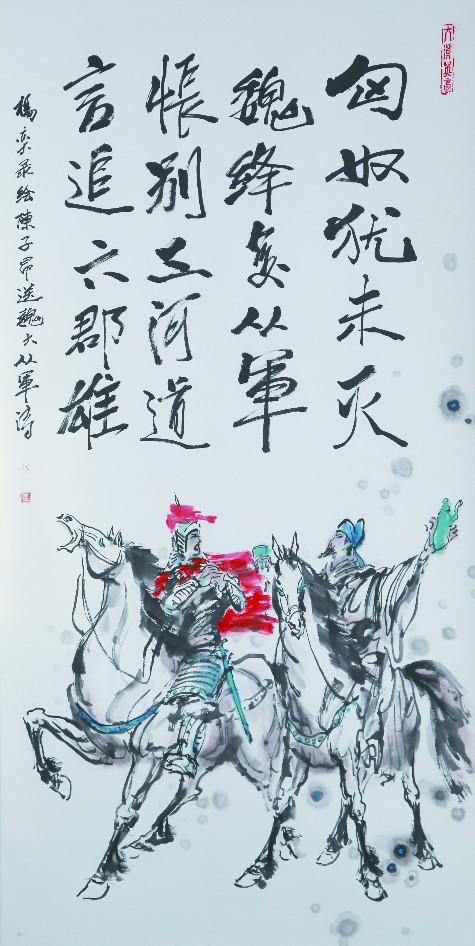 匈奴犹未灭
魏绛复从軍
悵别三河道
言追六郡雄
楊录绘陳子昂送魏大从軍诗